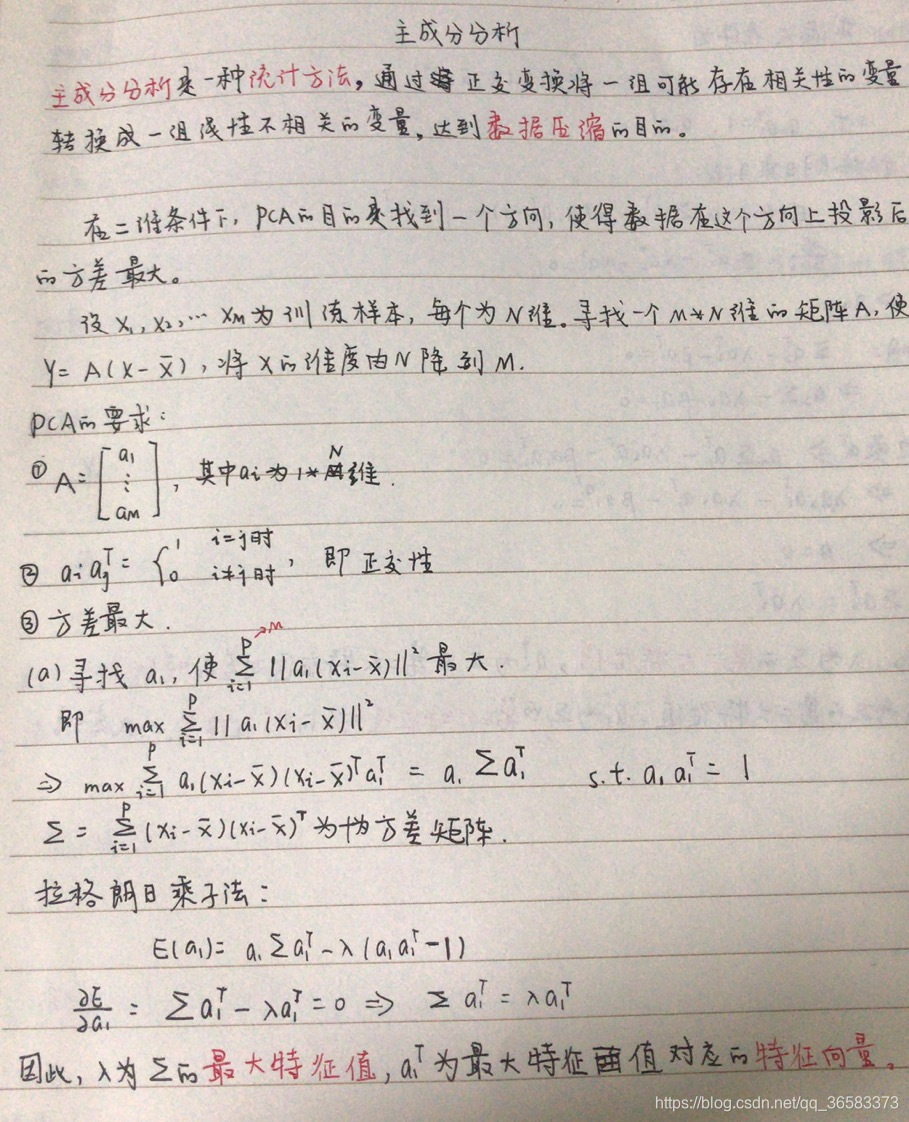 主成分分析
主成分分析是一种统计方法。通过 正交变换将一组可能存在相关性的变量
转换成一组线性不相关的变量,达到数据压缩的目的。
在二维条件下,PCA的目的是找到一个方向,使得数据在这个方向上投影后
的方差最大。
设 X₁, X₂, … Xₘ 为训练样本,每个为N维。寻找一个 M*N维的矩阵A,使
Y= A(X-X̄),将X的维度由N降到M.
PCA的要求:
① A=[a₁ ⋮ aₘ], 其中aᵢ为1*N维.
② aᵢaⱼᵀ= {1 i=j时, 0 i≠j时, 即正交性
③ 方差最大.
(a) 寻找 a₁, 使 ∑ᵢ₌₁ᴾ→ᴹ ||a₁(xᵢ-x̄)||² 最大.
即 max ∑ᵢ₌₁ᴾ ||a₁(xᵢ-x̄)||²
⇒ max ∑ᵢ₌₁ᴾ a₁(xᵢ-x̄)(xᵢ-x̄)ᵀa₁ᵀ = a₁Σa₁ᵀ s.t. a₁a₁ᵀ = 1
Σ = ∑ᵢ₌₁ᴾ (xᵢ-x̄)(xᵢ-x̄)ᵀ为协方差矩阵.
拉格朗日乘子法:
E(a₁)= a₁Σa₁ᵀ-λ(a₁a₁ᵀ-1)
∂E/∂a₁ = Σa₁ᵀ-λa₁ᵀ=0 ⇒ Σa₁ᵀ=λa₁ᵀ
因此, λ为Σ的最大特征值, a₁ᵀ为最大特征值对应的特征向量。
https://blog.csdn.net/qq_36583373